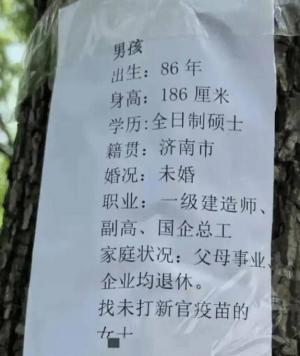 男孩
出生：86 年
身高：186 厘米
学历:全日制硕士
籍贯：济南市
婚况：未婚
职业：一级建造师、
副高、国企总工
家庭状况：父母事业、
企业均退休。
找未打新官疫苗的
女士